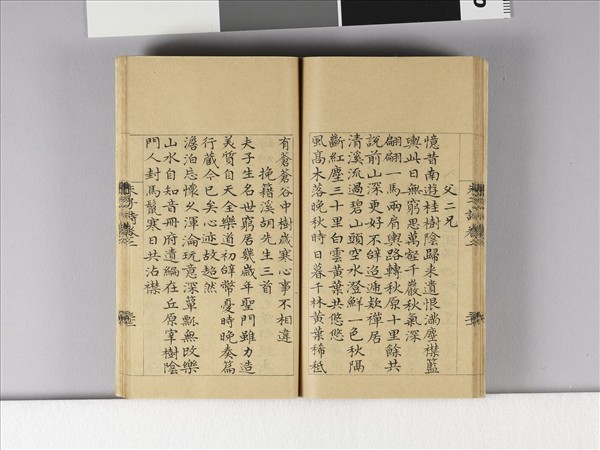 父二兄
憶昔南遊桂樹陰歸来遺恨滿塵襟籃
輿此日無窮思萬壑千巖秋氣深
翩翩一馬兩肩輿路轉秋原十里餘共
說前山深更好不辭迢遞欵禪居
清溪流過碧山頭空水澄鮮一色秋隔
斷紅塵三十里白雲黄葉共悠悠
風髙木落晚秋時日暮千林黄葉稀秪
有蒼蒼谷中樹歲寒心事不相違
挽籍溪胡先生三首
夫子生名世窮居幾歲年聖門雖力造
美質自天全樂道初辭幣憂時晚奏篇
行藏今已矣心迹故超然
澹泊忘懐久渾淪玩意深簞瓢無改樂
山水自知音冊府遺編在丘原宰樹陰
門人封馬鬛寒日共沾襟
朱子詩卷二